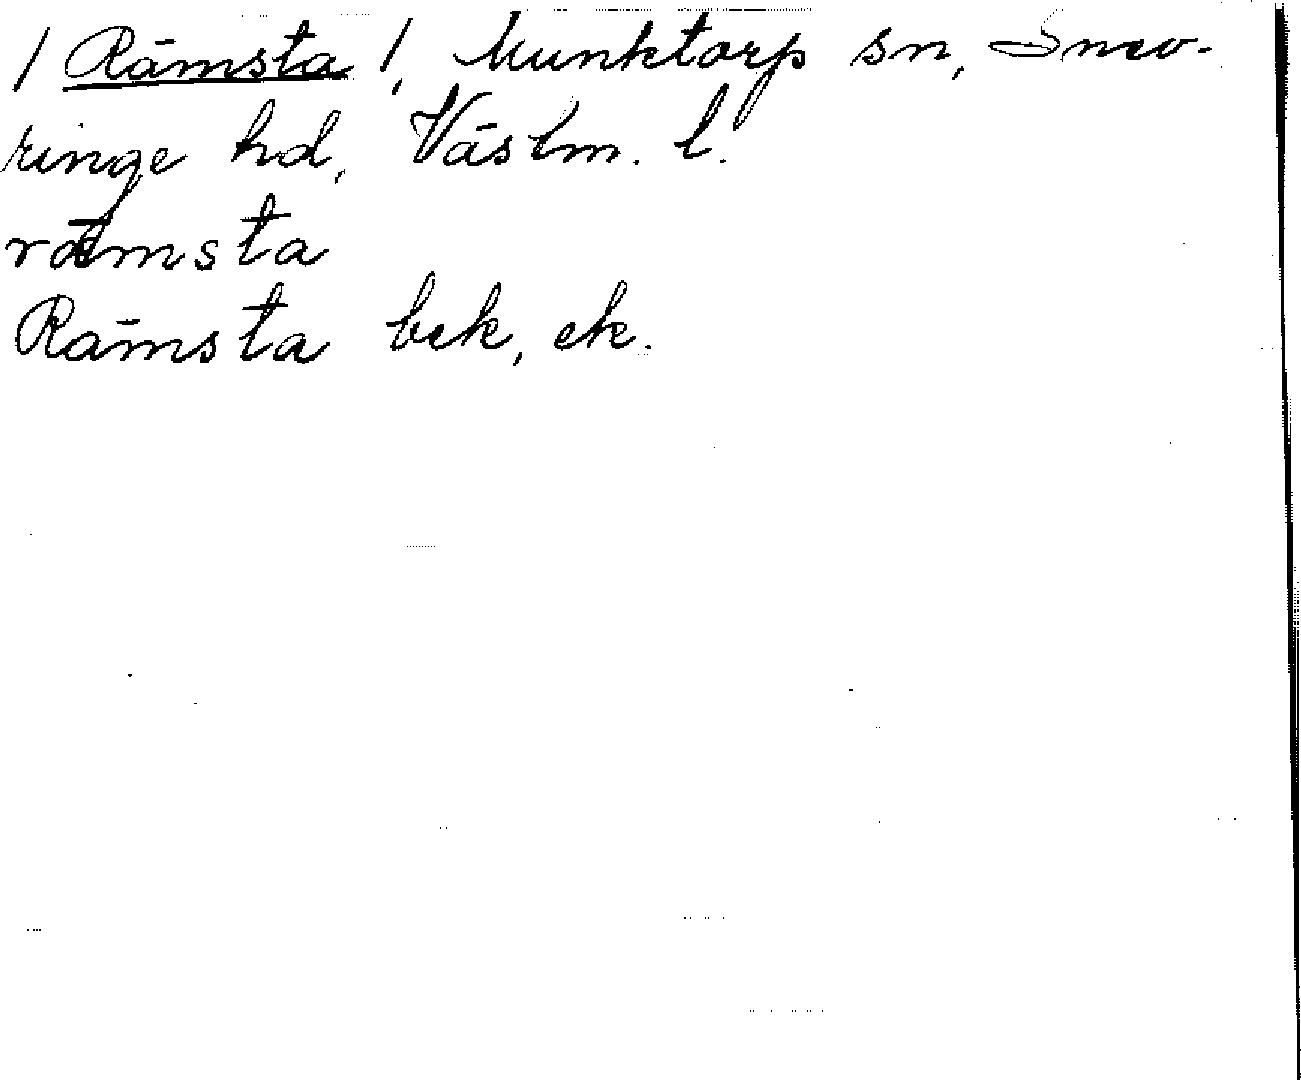 / Rämsta /, Munktorp sn, Snev-
ringe hd, Västm. l.
rämsta
Rämsta bek, ek.